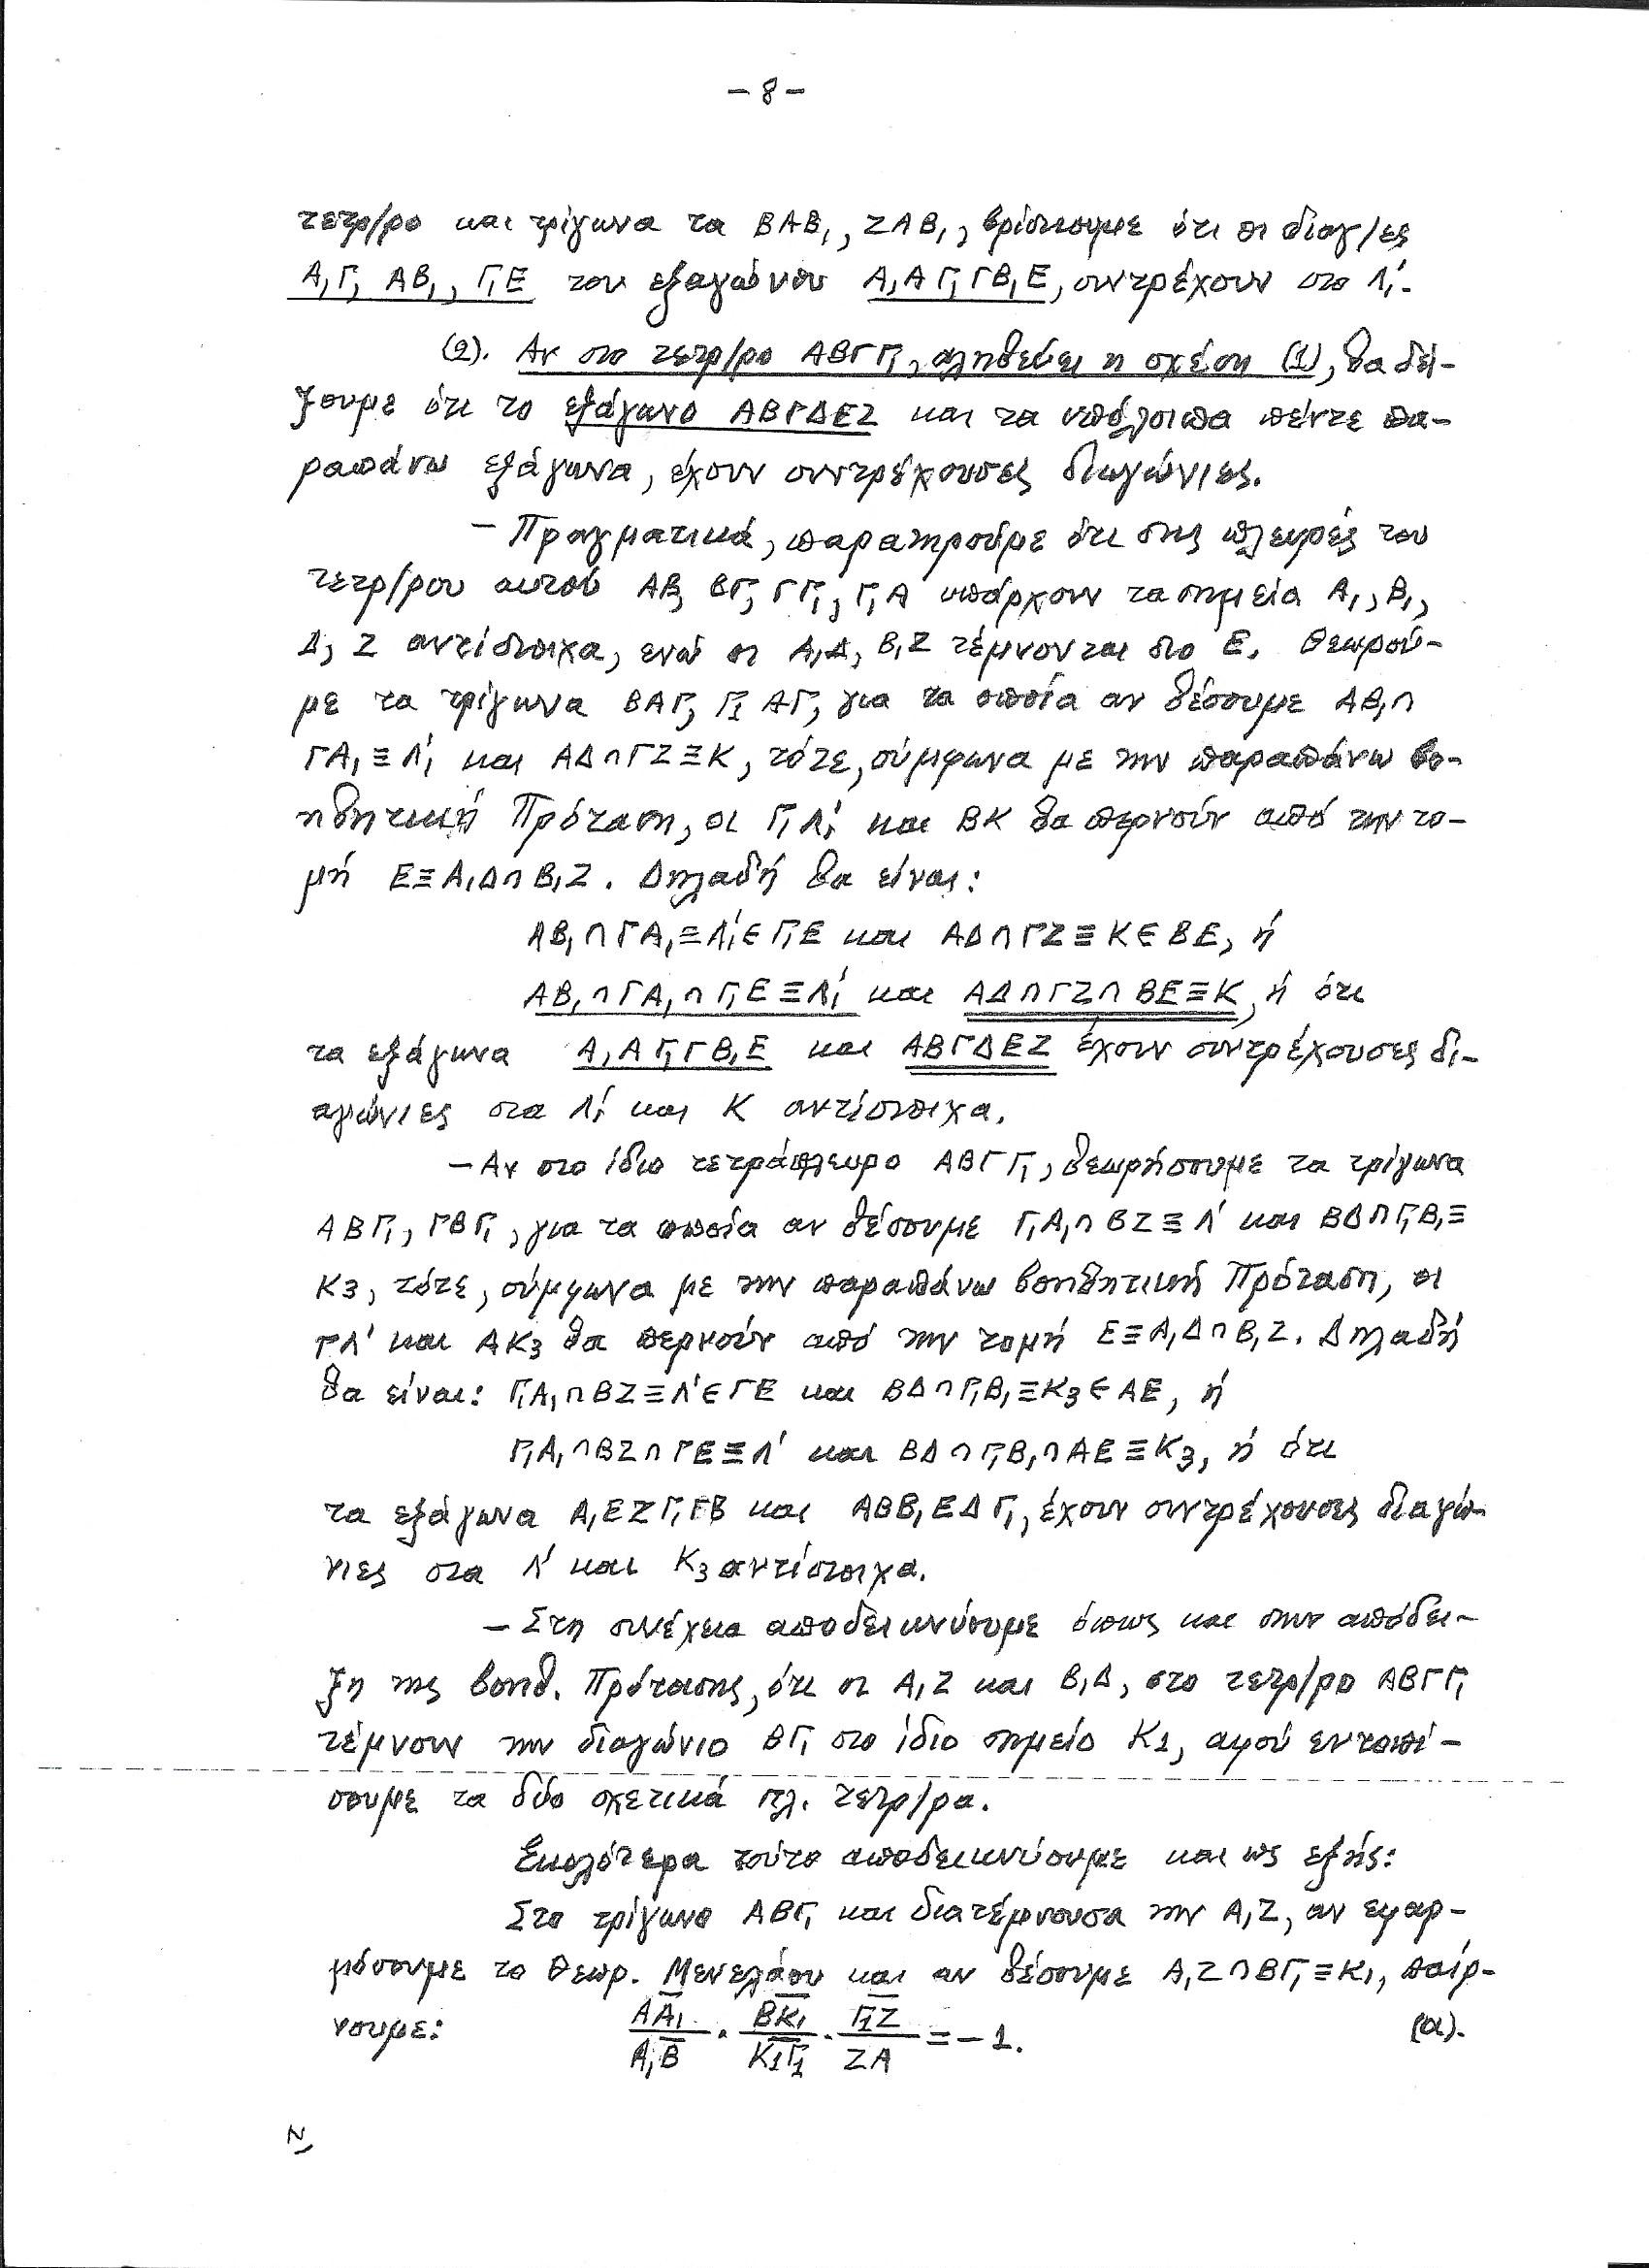 - 8 -
τετρ/ρο και τρίγωνα τα ΒΑΒ₁, ΖΑΒ₁, βρίσκουμε ότι οι διαγ/ες
Α₁Γ, ΑΒ₁, Γ₁Ε του εξαγώνου Α₁ΑΓ₁ΓΒ₁Ε, συντρέχουν στο Λ₁'.
(2). Αν στο τετρ/ρο ΑΒΓΓ₁, αληθεύει η σχέση (1), θα δεί-
ξουμε ότι το εξάγωνο ΑΒΓΔΕΖ και τα υπόλοιπα πέντε πα-
ραπάνω εξάγωνα, έχουν συντρέχουσες διαγώνιες.
– Πραγματικά, παρατηρούμε ότι στις πλευρές του
τετρ/ρου αυτού ΑΒ, ΒΓ, ΓΓ₁, Γ₁Α υπάρχουν τα σημεία Α₁, Β₁,
Δ, Ζ αντίστοιχα, ενώ οι Α₁Δ, Β₁Ζ τέμνονται στο Ε. Θεωρού-
με τα τρίγωνα ΒΑΓ, Γ₁ΑΓ, για τα οποία αν θέσουμε ΑΒ₁∩
ΓΑ₁≡Λ₁' και ΑΔ∩ΓΖ≡Κ, τότε, σύμφωνα με την παραπάνω βο-
ηθητική Πρόταση, οι Γ₁Λ₁' και ΒΚ θα περνούν από την το-
μή Ε≡Α₁Δ∩Β₁Ζ. Δηλαδή θα είναι:
ΑΒ₁∩ΓΑ₁≡Λ₁'∈Γ₁Ε και ΑΔ∩ΓΖ≡Κ∈ΒΕ, ή
ΑΒ₁∩ΓΑ₁∩Γ₁Ε≡Λ₁' και ΑΔ∩ΓΖ∩ΒΕ≡Κ, ή ότι
τα εξάγωνα Α₁ΑΓ₁ΓΒ₁Ε και ΑΒΓΔΕΖ έχουν συντρέχουσες δι-
αγώνιες στα Λ₁' και Κ αντίστοιχα.
– Αν στο ίδιο τετράπλευρο ΑΒΓΓ₁, θεωρήσουμε τα τρίγωνα
ΑΒΓ₁, ΓΒΓ₁, για τα οποία αν θέσουμε Γ₁Α₁∩ΒΖ≡Λ' και ΒΔ∩Γ₁Β₁≡
Κ3, τότε, σύμφωνα με την παραπάνω βοηθητική Πρόταση, οι
ΓΛ' και ΑΚ3 θα περνούν από την τομή Ε≡Α₁Δ∩Β₁Ζ. Δηλαδή
θα είναι: Γ₁Α₁∩ΒΖ≡Λ'∈ΓΕ και ΒΔ∩Γ₁Β₁≡Κ3∈ΑΕ, ή
Γ₁Α₁∩ΒΖ∩ΓΕ≡Λ' και ΒΔ∩Γ₁Β₁∩ΑΕ≡Κ3, ή ότι
τα εξάγωνα Α₁ΕΖΓ₁ΓΒ και ΑΒΒ₁ΕΔΓ₁, έχουν συντρέχουσες διαγώ-
νιες στα Λ' και Κ3 αντίστοιχα.
– Στη συνέχεια αποδεικνύουμε όπως και στην απόδει-
ξη της βοηθ. Πρότασης, ότι οι Α₁Ζ και Β₁Δ, στο τετρ/ρο ΑΒΓΓ₁
τέμνουν την διαγώνιο ΒΓ₁ στο ίδιο σημείο Κ1, αφού εντοπί-
σουμε τα δύο σχετικά πλ. τετρ/ρα.
Ευκολότερα τούτο αποδεικνύουμε και ως εξής:
Στο τρίγωνο ΑΒΓ₁ και διατέμνουσα την Α₁Ζ, αν εφαρ-
μόσουμε το Θεωρ. Μενελάου και αν θέσουμε Α₁Ζ∩ΒΓ₁≡Κ₁, παίρ-
νουμε: ΑΑ₁/Α₁Β · ΒΚ₁/Κ1Γ1 · Γ1Ζ/ΖΑ = -1. (α).
Ν